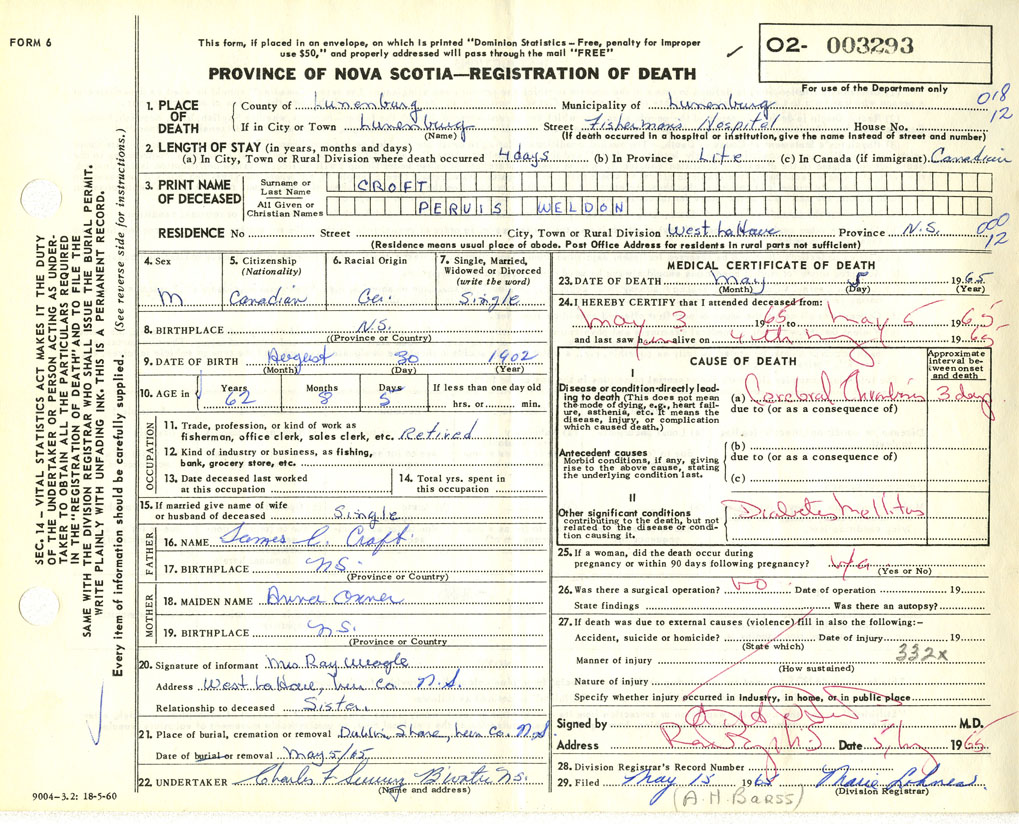 FORM 6
This form, if placed in an envelope, on which is printed "Dominion Statistics – Free, penalty for improper
use $50," and properly addressed will pass through the mail "FREE"
O2- 003293
PROVINCE OF NOVA SCOTIA—REGISTRATION OF DEATH
For use of the Department only
018
12
1. PLACE OF DEATH
County of Lunenburg Municipality of Lunenburg
If in City or Town Lunenburg Street Fisherman's Hospital House No.
(Name) (If death occurred in a hospital or institution, give the name instead of street and number)
2. LENGTH OF STAY (in years, months and days)
(a) In City, Town or Rural Division where death occurred 4 days (b) In Province Life (c) In Canada (if immigrant) Canadian
3. PRINT NAME OF DECEASED
Surname or Last Name CROFT
All Given or Christian Names PERVIS WELDON
RESIDENCE No Street City, Town or Rural Division West LaHave Province N.S.
000
12
(Residence means usual place of abode. Post Office Address for residents in rural parts not sufficient)
4. Sex M
5. Citizenship (Nationality) Canadian
6. Racial Origin Ger.
7. Single, Married, Widowed or Divorced (write the word) Single
8. BIRTHPLACE N.S.
(Province or Country)
9. DATE OF BIRTH August 30 1902
(Month) (Day) (Year)
10. AGE in Years 62 Months 8 Days 5 If less than one day old hrs. or min.
OCCUPATION
11. Trade, profession, or kind of work as
fisherman, office clerk, sales clerk, etc. Retired
12. Kind of industry or business, as fishing,
bank, grocery store, etc.
13. Date deceased last worked at this occupation
14. Total yrs. spent in this occupation
15. If married give name of wife
or husband of deceased Single
FATHER
16. NAME James C. Croft
17. BIRTHPLACE N.S.
(Province or Country)
MOTHER
18. MAIDEN NAME Anna Oxner
19. BIRTHPLACE N.S.
(Province or Country
20. Signature of informant Mrs Ray Meagle
Address West LaHave, Lun Co. N.S.
Relationship to deceased Sister
21. Place of burial, cremation or removal Dublin Shore, Lun Co. N.S
Date of burial or removal May 5/65
22. UNDERTAKER Charles F B'water N.S.
(Name and address)
MEDICAL CERTIFICATE OF DEATH
23. DATE OF DEATH May 5 1965
(Month) (Day) (Year)
24. I HEREBY CERTIFY that I attended deceased from:
May 3 1965 to May 5 1965
and last saw h alive on 4th May 1965
CAUSE OF DEATH
Approximate interval between onset and death
I
Disease or condition directly leading to death (This does not mean the mode of dying, e.g., heart failure, asthenia, etc. It means the disease, injury, or complication which caused death.)
(a) Cerebral Thrombosis 3 days
due to (or as a consequence of)
Antecedent causes
Morbid conditions, if any, giving rise to the above cause, stating the underlying condition last.
(b)
due to (or as a consequence of)
(c)
II
Other significant conditions
contributing to the death, but not related to the disease or condition causing it.
Diabetes Mellitus
25. If a woman, did the death occur during
pregnancy or within 90 days following pregnancy?
(Yes or No)
26. Was there a surgical operation? No Date of operation 19
State findings Was there an autopsy?
27. If death was due to external causes (violence) fill in also the following:-
Accident, suicide or homicide? Date of injury 19
(State which)
332x
Manner of injury
(How sustained)
Nature of injury
Specify whether injury occurred in industry, in home, or in public place
Signed by M.D.
Address Date 1965
28. Division Registrar's Record Number
29. Filed May 15 1965 Marie Lohnes
(Division Registrar)
(A.H. BARSS)
SEC. 14 – VITAL STATISTICS ACT MAKES IT THE DUTY
OF THE UNDERTAKER OR PERSON ACTING AS UNDER-
TAKER TO OBTAIN ALL THE PARTICULARS REQUIRED
IN THE "REGISTRATION OF DEATH" AND TO FILE THE
SAME WITH THE DIVISION REGISTRAR WHO SHALL ISSUE THE BURIAL PERMIT.
WRITE PLAINLY WITH UNFADING INK. THIS IS A PERMANENT RECORD.
Every item of information should be carefully supplied. (See reverse side for instructions.)
9004–3.2: 18-5-60